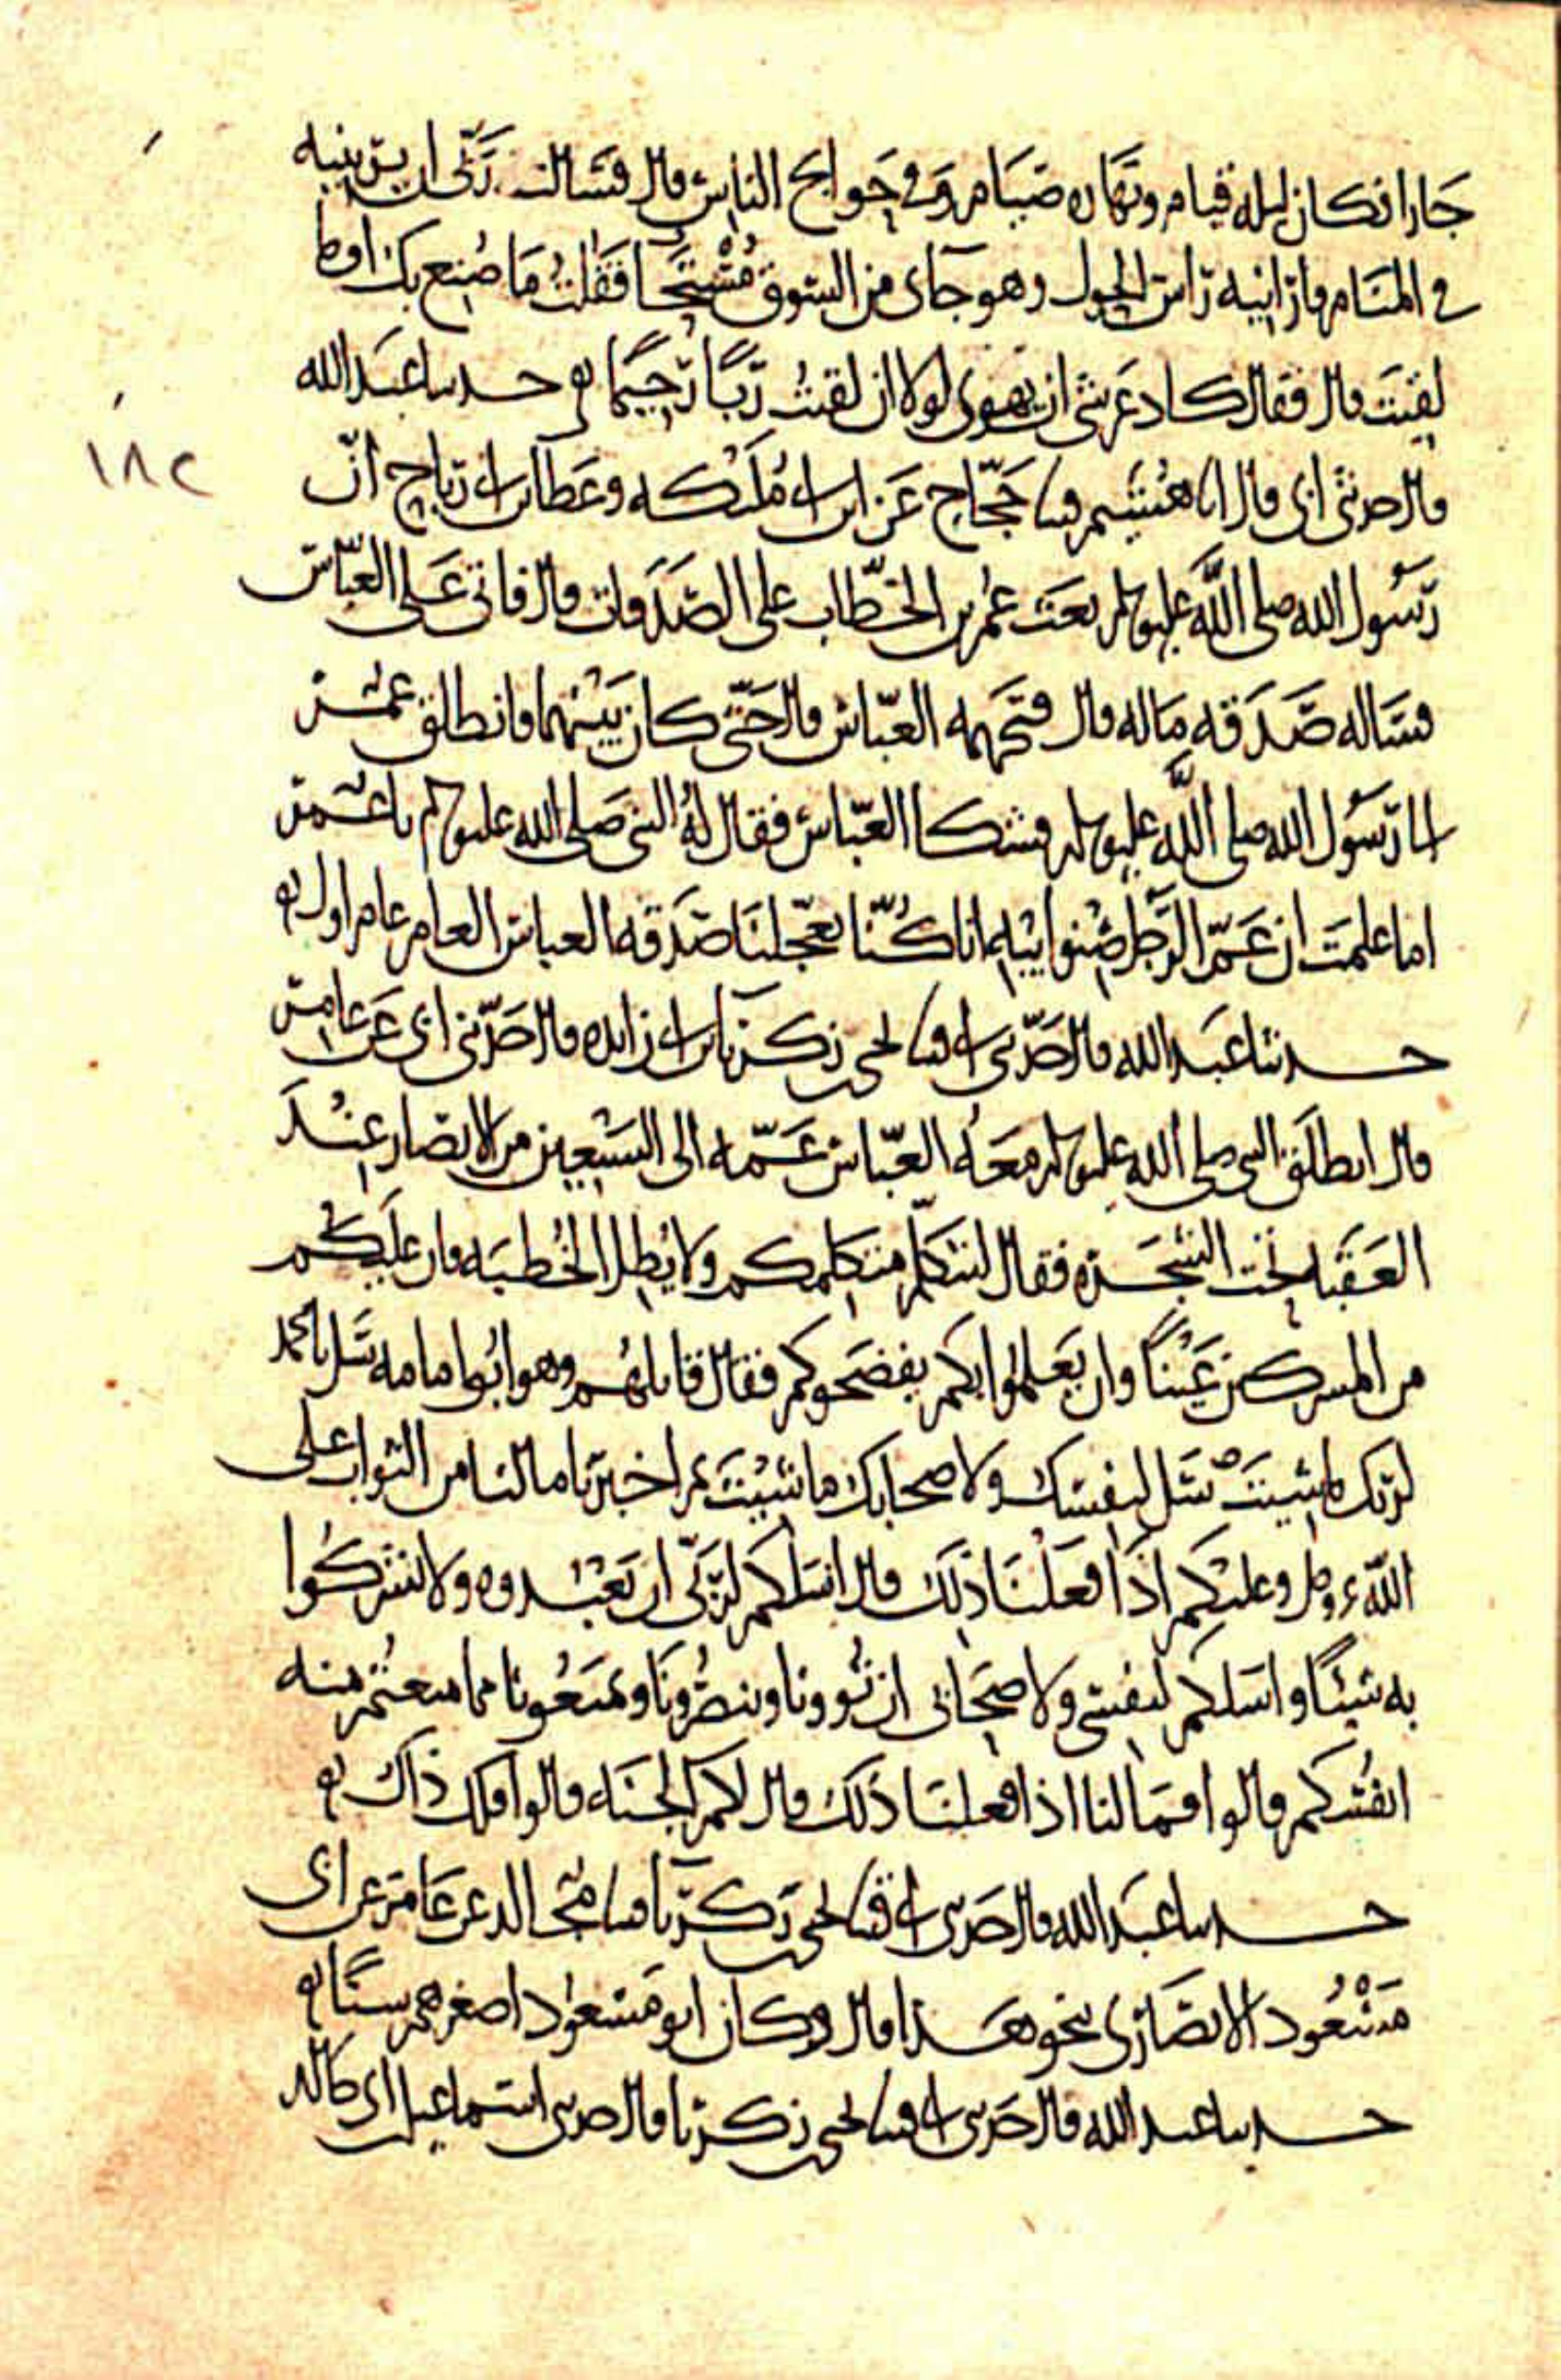 جارا فكان ليله قيام ونهاره صيام وفي حوائج الناس قال فسالت ربي ان يرينيه
في المنام فارانيه راس الحول وهو جاي من السوق متشحا فقلت ما صنع بك او ما
لقيت قال فقال كاد عرشي ان يهوي لولا ان لقيت ربا رحيما حدثنا عبد الله
قال حدثني ابي قال انا هشيم قثنا حجاج عن ابن ابي مليكه وعطا بن ابي رباح انّ
١٨٢
رسول الله صلى الله عليه وسلم بعث عمر بن الخطّاب على الصدقات قال فاتى على العبّاس
فساله صدقه ماله قال فتجهمه العبّاس قال حتّى كان بينهما فانطلق عمر
الى رسول الله صلى الله عليه وسلم فشكا العبّاس فقال له النبي صلى الله عليه وسلم يا عمر
اما علمت ان عمّ الرجل صنو ابيه انا كنّا تعجّلنا صدقه العباس العام عام اول
حدثنا عبد الله قال حدّثني ابي قثنا يحيى بن زكريا بن ابي زايده قال حدّثني ابي عن عامر
قال انطلق النبي صلى الله عليه وسلم معه العبّاس عمّه الى السبعين من الانصار عند
العقبه تحت الشجره فقال ليتكلّم متكلمكم ولا يطل الخطبه فان عليكم
من المشركين عينا وان يعلموا بكم يفضحوكم فقال قايلهم وهو ابوا امامه سل يا محمد
لربك ما شيت سل لنفسك ولاصحابك ما شيت ثم اخبرنا ما لنا من الثواب على
اللّه عز وجل وعليكم اذا فعلنا ذلك قال اسلكم لربّي ان تعبدوه ولا تشركوا
به شيئا واسلكم لنفسي ولاصحابي ان تووونا وتنصرونا وتمنعونا مما منعتم منه
انفسكم قالوا فما لنا اذا فعلنا ذلك قال لكم الجنه قالوا فلك ذاك
حدثنا عبد الله قال حدثني ابي قثنا يحيى بن زكريا قثنا مجالد عن عامر عن ابي
مسعود الانصاري بنحو هذا قال وكان ابو مسعود اصغرهم سنا
حدثنا عبد الله قال حدثني ابي قثنا يحيى بن زكريا قال حدثني اسماعيل بن ابي خالد